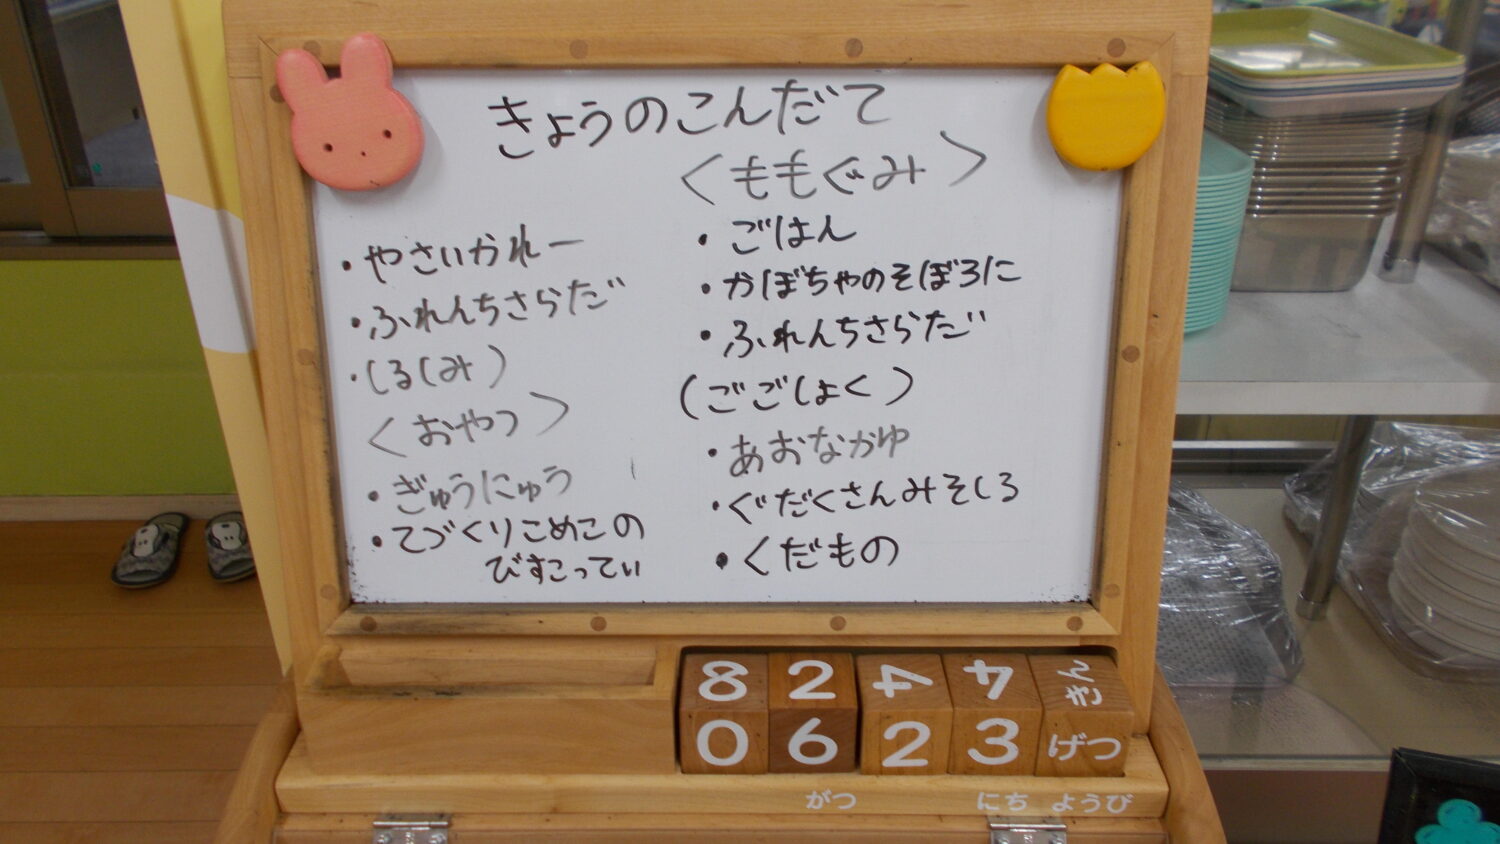 きょうのこんだて
・やさいかれー
・ふれんちさらだ
・(るしみ)
<おやつ>
・ぎゅうにゅう
・てづくりこめこの
びすこってぃ
<ももぐみ>
・ごはん
・かぼちゃのそぼろに
・ふれんちさらだ
(ごごしょく)
・あおなかゆ
・ぐだくさんみそしる
・くだもの
8 2 4 4 きん
0 6 2 3 げつ
がつ にち ようび